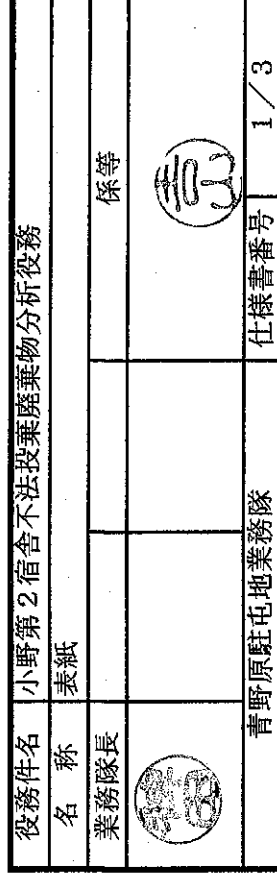 役務件名 小野第2宿舎不法投棄廃棄物分析役務
名 称 表紙
業務隊長 係等
青野原駐屯地業務隊 仕様書番号 1/3